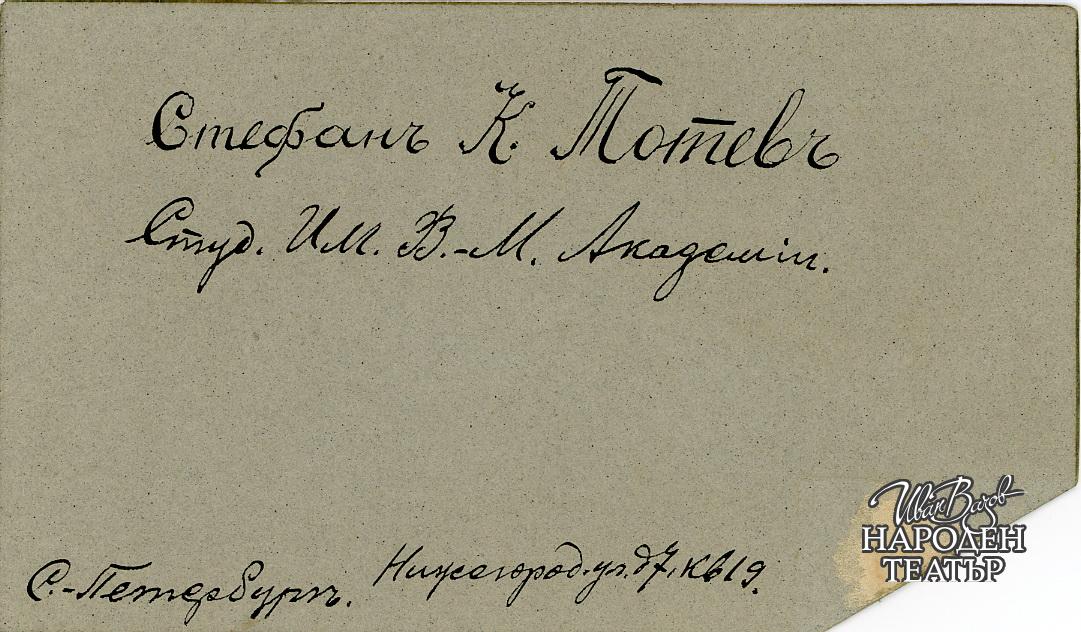 Стефанъ К. Тотевъ
Студ. Им. В.-М. Академіи.
С.-Петербургъ. Нижегород. ул. д 7, кв 19.
Иван Вазов
НАРОДЕН
ТЕАТЪР